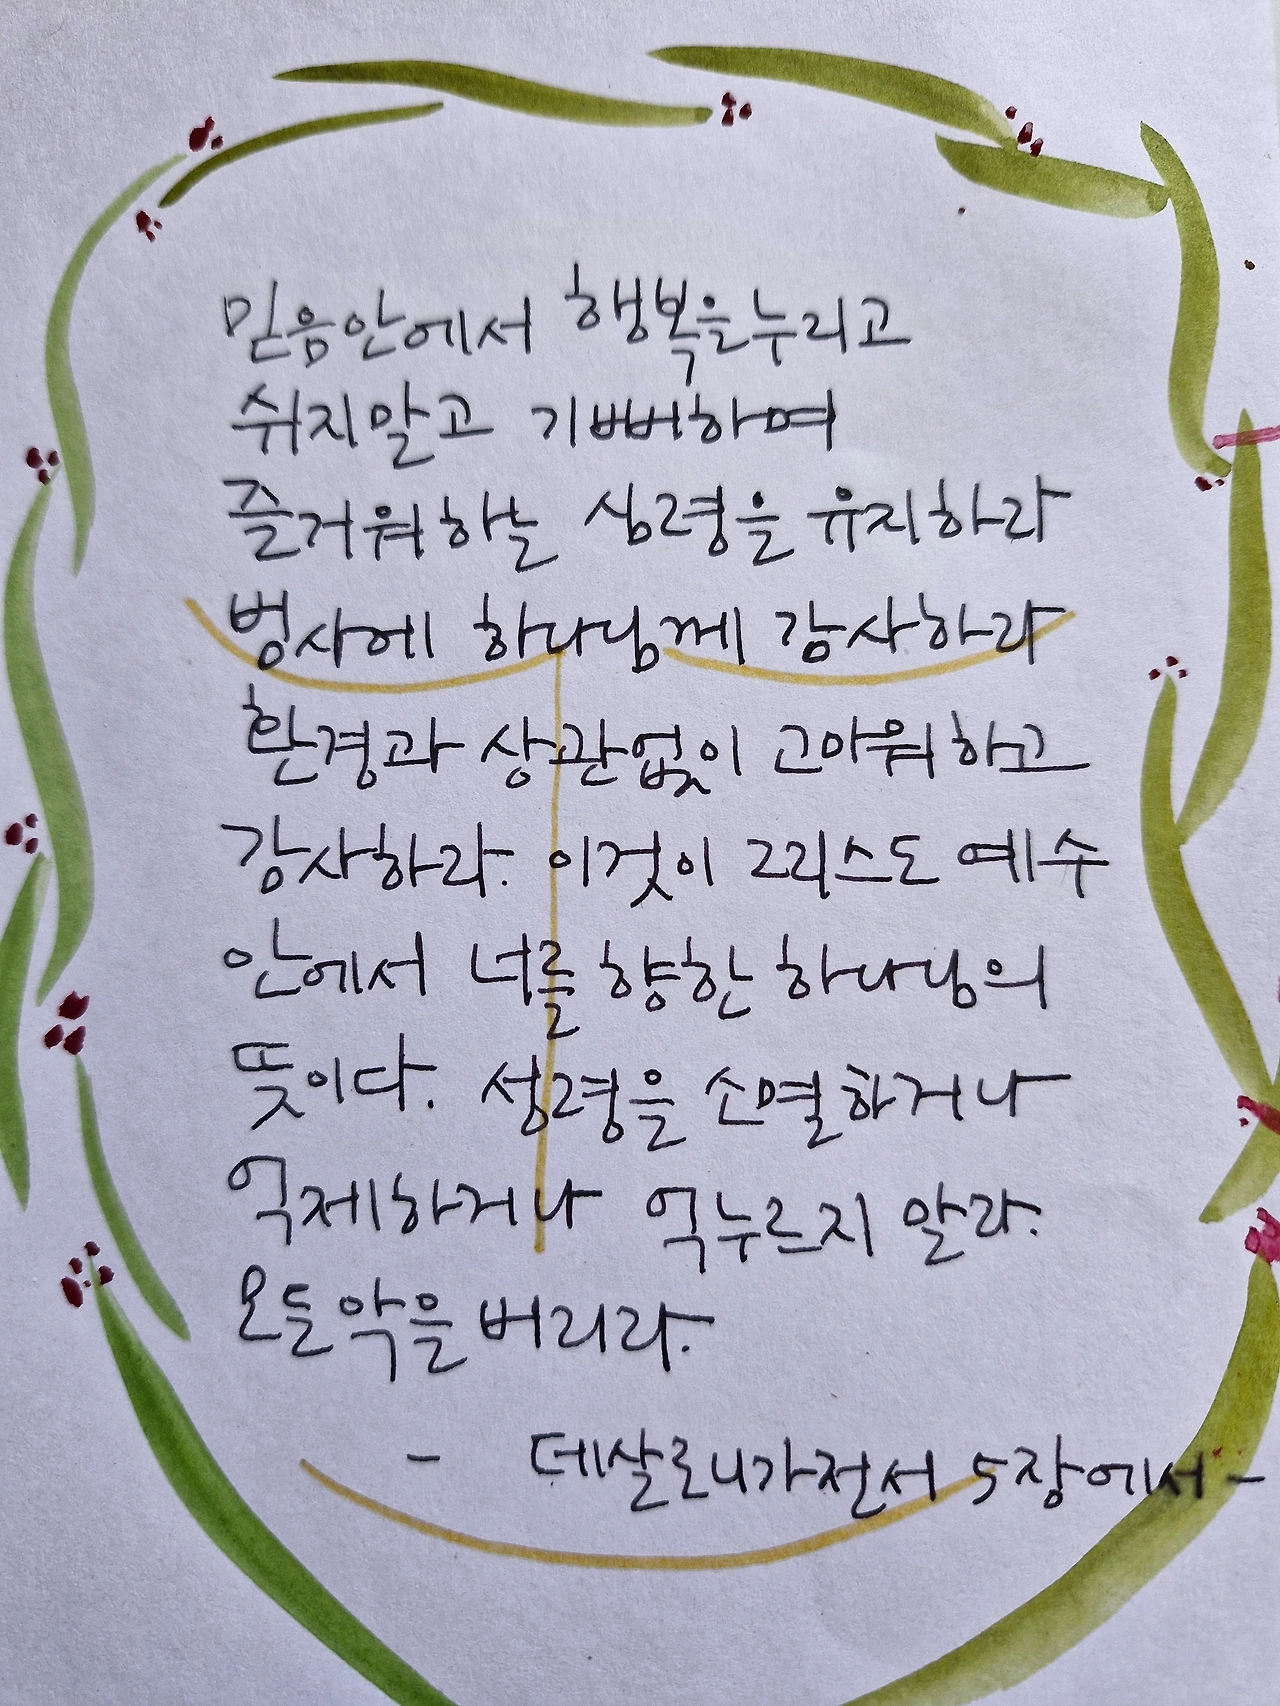 믿음안에서 행복을누리고
쉬지말고 기뻐하며
즐거워하는 심령을 유지하라
범사에 하나님께 감사하라
환경과 상관없이 고마워하고
감사하라. 이것이 그리스도 예수
안에서 너를 향한 하나님의
뜻이다. 성령을 소멸하거나
억제하거나 억누르지 말라.
모든악을 버리라.
- 데살로니가전서 5장에서 -